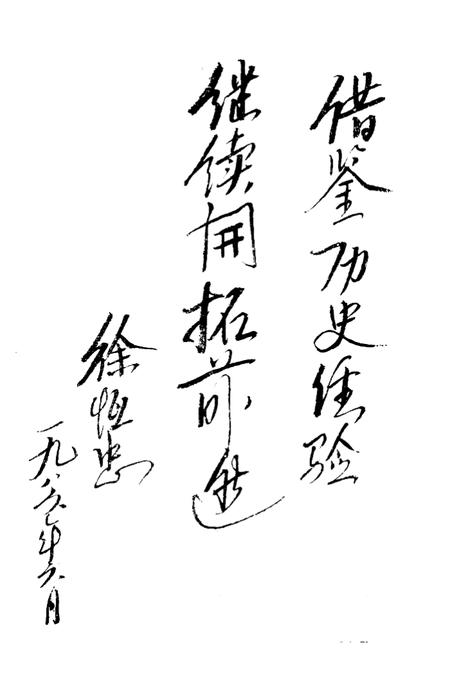 借鉴历史经验
继续開拓前進
徐恒忠
一九八五年六月